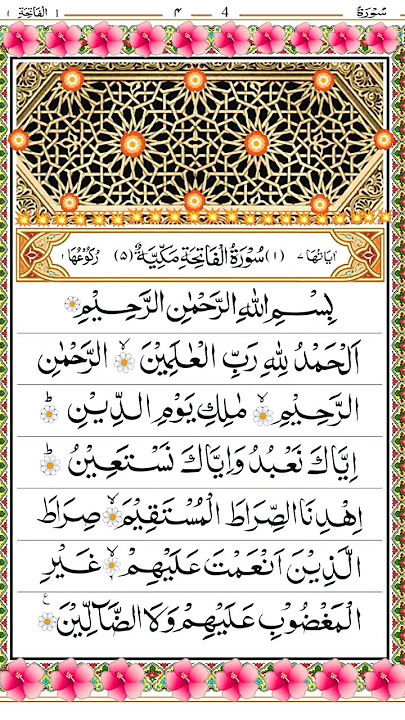 سُوْرَةُ ۴ 4 اَلْفَاتِحَةِ ١
اٰيَاتُهَا ٧ (١) سُوْرَةُ الْفَاتِحَةِ مَكِّيَّةٌ (٥) رُكُوْعُهَا ١
بِسْمِ اللهِ الرَّحْمٰنِ الرَّحِيْمِ
اَلْحَمْدُ لِلّٰهِ رَبِّ الْعٰلَمِيْنَ ۙ الرَّحْمٰنِ
الرَّحِيْمِ ۙ مٰلِكِ يَوْمِ الدِّيْنِ ؕ
اِيَّاكَ نَعْبُدُ وَاِيَّاكَ نَسْتَعِيْنُ ؕ
اِهْدِنَا الصِّرَاطَ الْمُسْتَقِيْمَ ۙ صِرَاطَ
الَّذِيْنَ اَنْعَمْتَ عَلَيْهِمْ ۙ غَيْرِ
الْمَغْضُوْبِ عَلَيْهِمْ وَلَا الضَّآلِّيْنَ ع